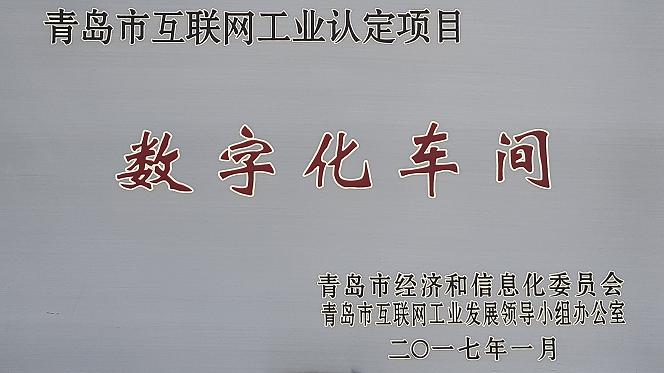 青岛市互联网工业认定项目
数字化车间
青岛市经济和信息化委员会
青岛市互联网工业发展领导小组办公室
二〇一七年一月